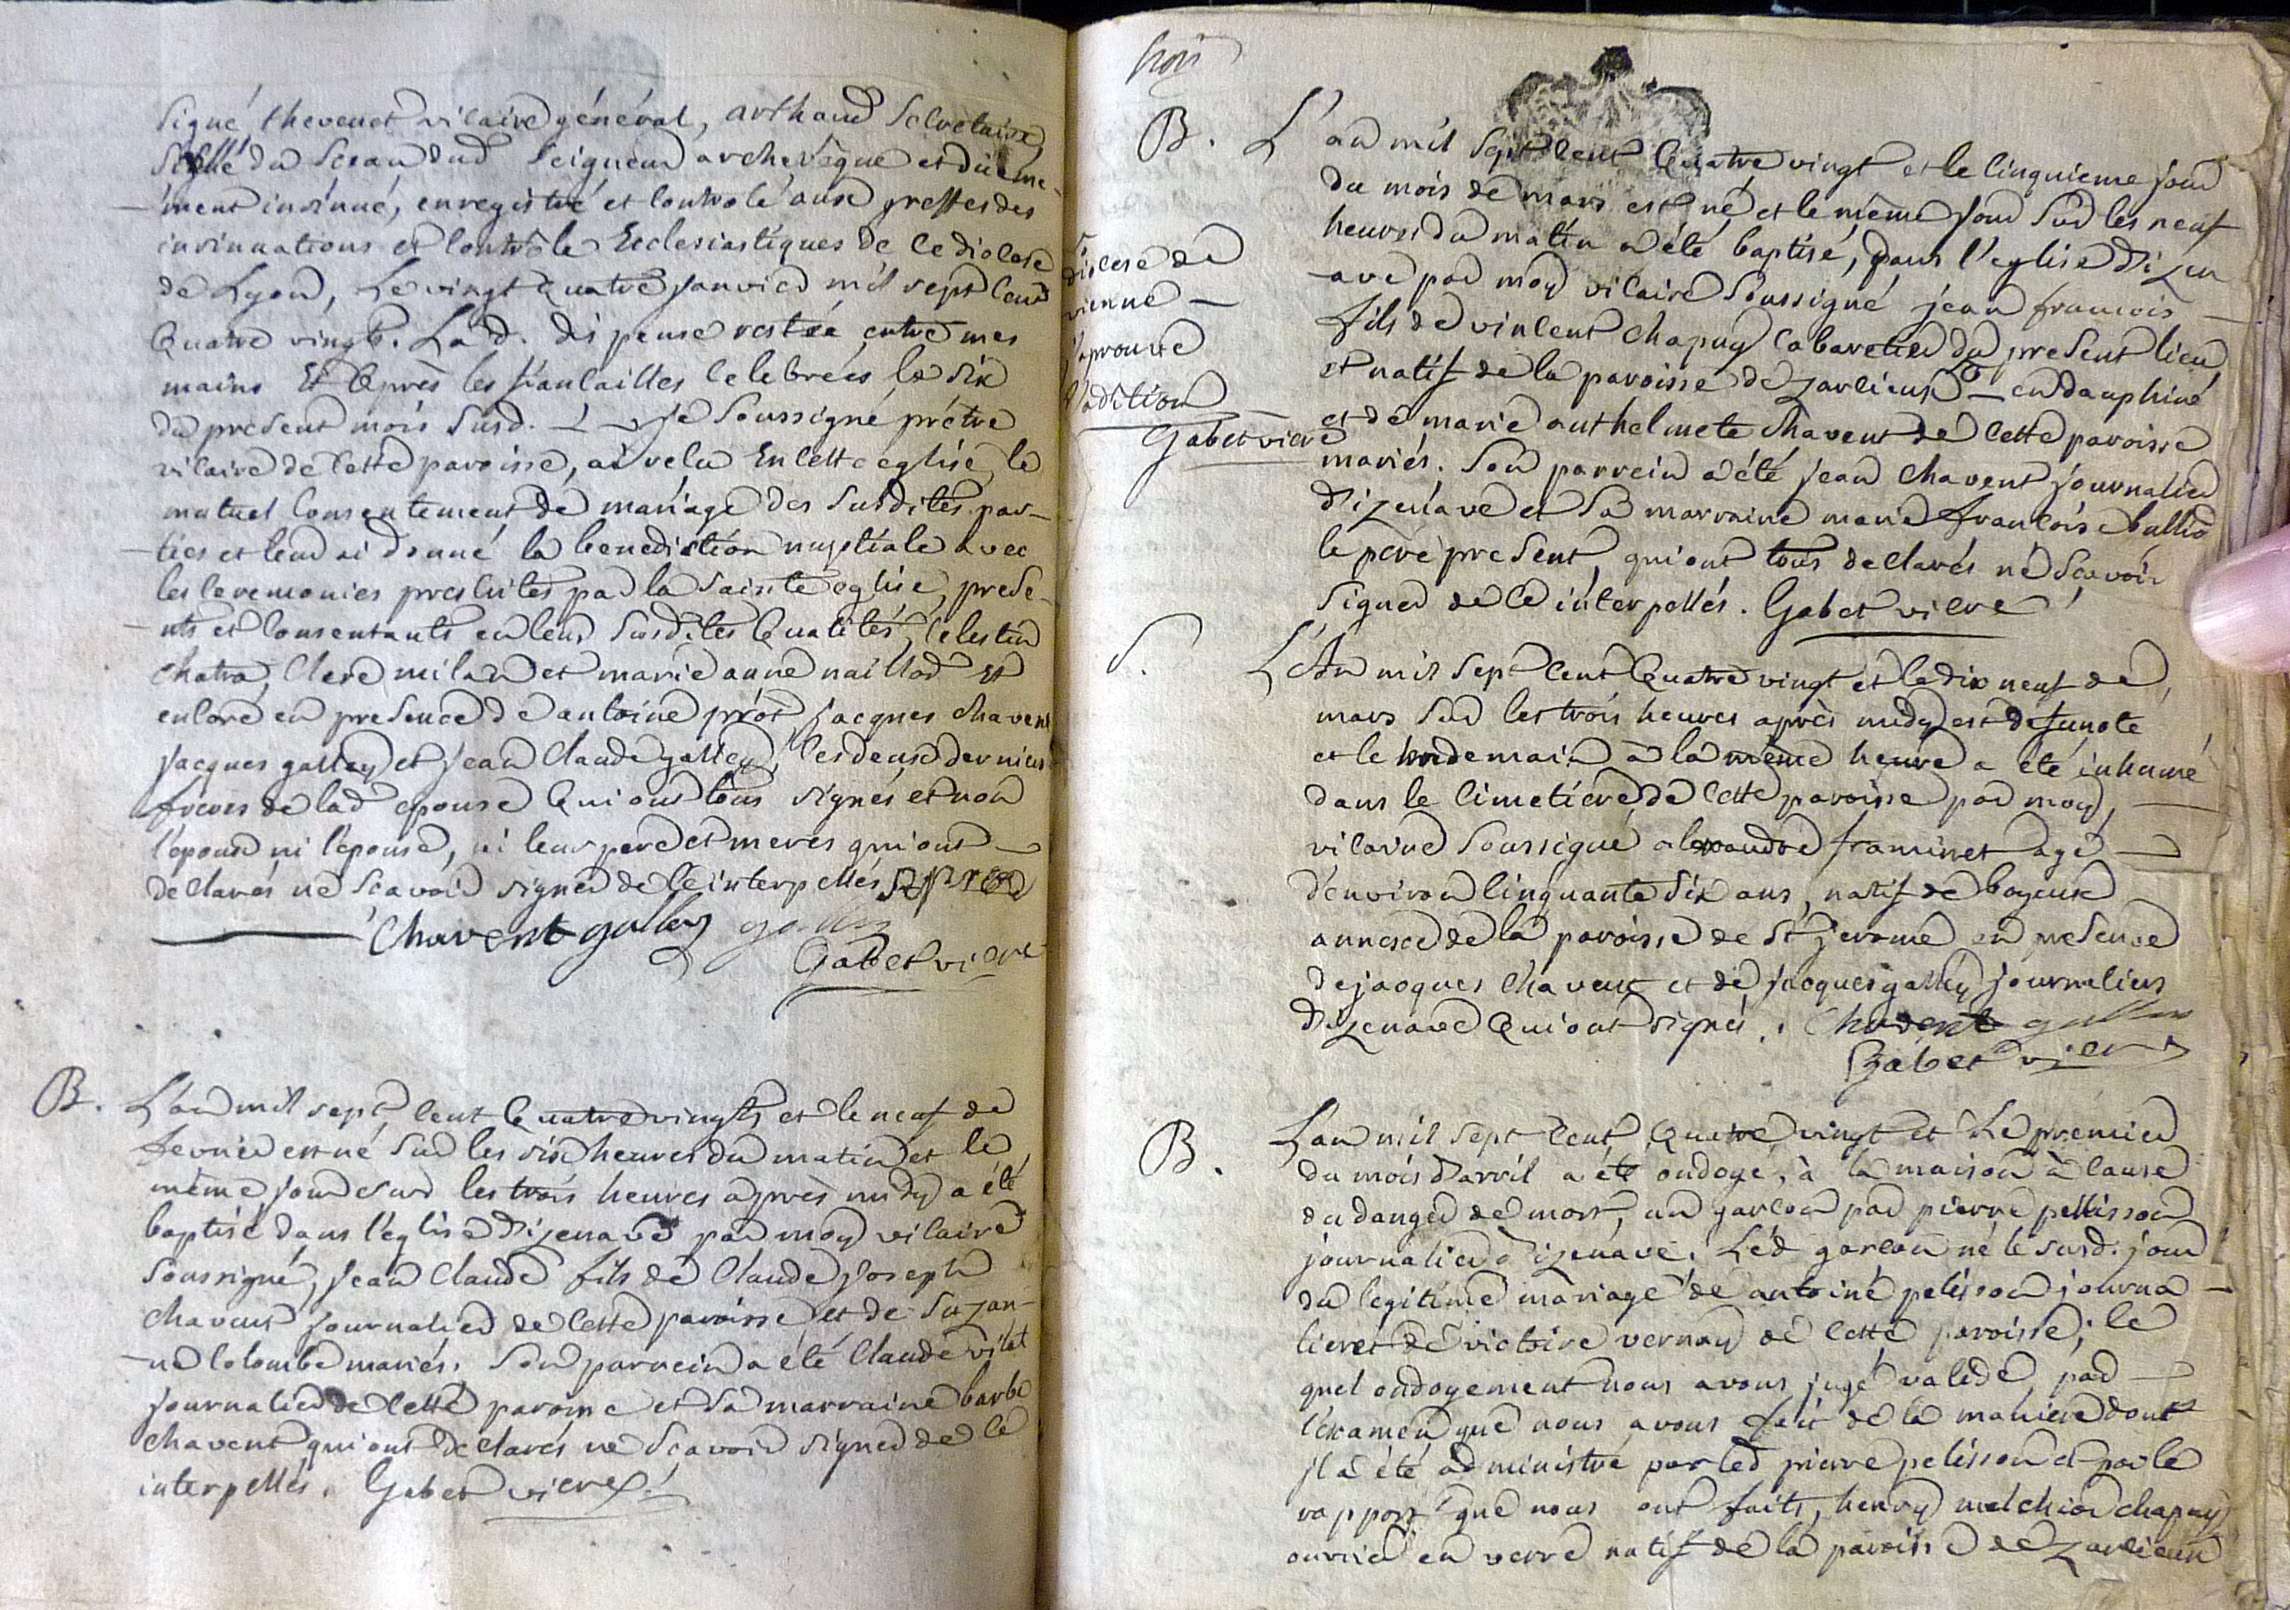 signé, thevenet vicaire général, arthaud secretaire,
scellé du sceau dud seigneur archevêque et düeme-
-ment insinué, enregistré et controlé aux greffes des
insinuations et controle Ecclesiastiques de ce diocese
de Lyon, Le vingt quatre janvier mil sept cent
quatre vingt. Lad. dispense restée entre mes
mains Et après les fiancailles celebrées le six
du present mois susd. je soussigné prêtre
vicaire de cette paroisse, ai reçu En cette eglise, le
mutuel consentement de mariage des susdites par-
-ties et leur ai donné la benediction nuptiale avec
les ceremonies prescrites par la sainte eglise, prese-
-nts et consentants en leurs susdites qualités, celestin
chatra, Clere milan et marie anne naillod Et
encore en presence de antoine prôst jacques chavent
jacques galley et jean claude galley, les deux derniers
freres de lad epouse qui ont tous signés et non
l'epoux ni l'epouse, ni leurs pere et meres qui ont
declarés ne sçavoir signer de ce interpellés
Chavent galley galley
Gabet vicre
B. L'an mil sept cent quatre vingts et le neuf de
fevrier est né sur les six heures du matin et le
même jour sur les trois heures après midy a été
baptisé dans l'église d'izenave par moy vicaire
soussigné, jean claude fils de claude joseph
chavent journalier de cette paroisse et de suzan-
-ne colombe mariés. Son parrein a été claude vilat
journalier de cette paroisse et sa marraine barbe
chavent qui ont declarés ne sçavoir signer de ce
interpellés. Gabet vicre
trois
B. L'an mil sept cent quatre vingt et le cinquieme jour
du mois de mars est né et le même jour sur les neuf
heures du matin a été baptisé, dans l'eglise d'izen
ave par moy vicaire soussigné jean francois
fils de vincent chapuy cabaretier du present lieu
et natif de la paroisse de zarlieux en dauphiné
et de marie anthelmete chavent de cette paroisse
mariés. Son parrein a été jean chavent journalier
d'izenave et sa marraine marie francoise bullio
le père present, qui ont tous declarés ne sçavoir
signer de ce interpellés. Gabet vicre
diocese de
vienne
j'aprouve
l'adition
Gabet vicre
S. L'An mil sept cent quatre vingt et le dix neuf de
mars sur les trois heures après midy est defuncte
et le lendemain à la même heure a été inhumé
dans le cimetiere de cette paroisse par moy,
vicaire soussigné alexandre framinet agé
d'environ cinquante six ans, natif de boyeux
annexe de la paroisse de St jerome en presence
de jacques chavent et de jacques galley journaliers
d'izenave qui ont signés. Chavent galley
Gabet vicre
B. L'an mil sept cent quatre vingt et Le premier
du mois d'avril a été ondoyé, à la maison à cause
du danger de mort, un garcon par pierre pellisson
journalier d'izenave. Led garcon né le susd. jour
du legitime mariage de antoine pelisson journa-
lier et de victoire vernay de cette paroisse; le
quel ondoyement nous avons jugé valide, par
l'examen que nous avons fait de la maniere dont
il a été administré par led pierre pelisson et par le
rapport que nous ont faits, henry melchior chapuy
ouvrier en verre natif de la paroisse de zarlieux